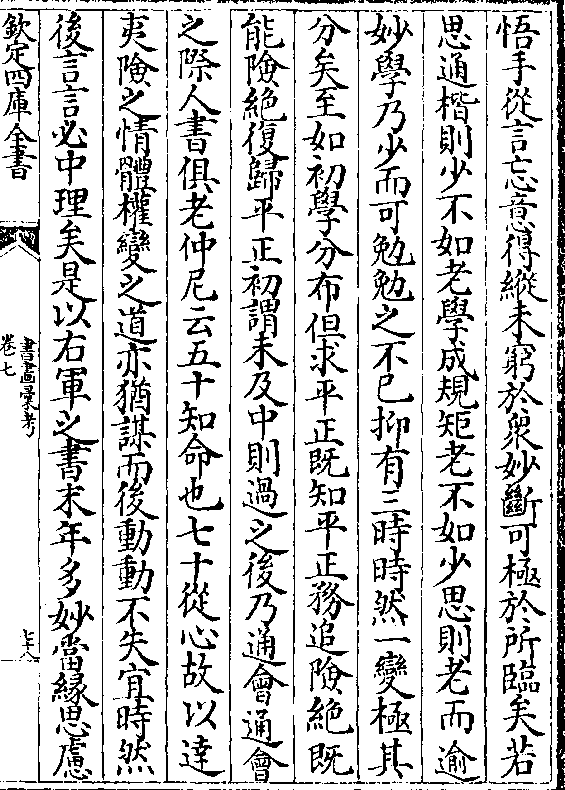 悟手從言忘意得縱未窮於衆妙斷可極於所臨矣若
思通楷則少不如老學成規矩老不如少思則老而逾
妙學乃少而可勉勉之不已抑有三時時然一變極其
分矣至如初學分布但求平正既知平正務追險絶既
能險絶復歸平正初謂未及中則過之後乃通會通會
之際人書俱老仲尼云五十知命也七十從心故以達
夷險之情體權變之道亦猶謀而後動動不失宜時然
後言言必中理矣是以右軍之書末年多妙當縁思慮
欽定四庫全書
書畫彙考
卷七
七十八